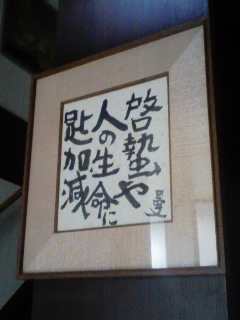 啓蟄や
人の生命に
匙加減